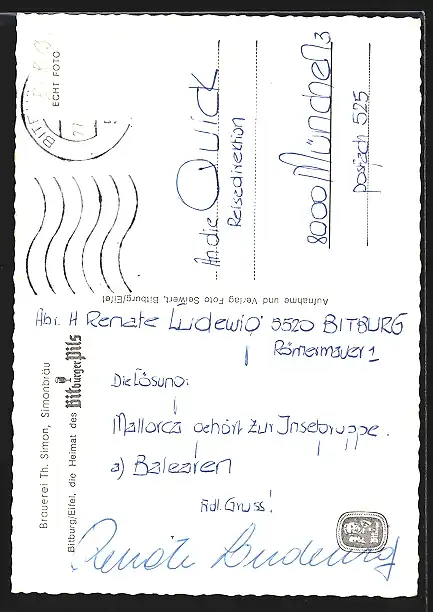 ECHT FOTO
An die Quick
Reisedirektion
8000 München 3
postfach 525
Aufnahme und Verlag Foto Seiwert, Bitburg/Eifel
Abs. H Renate Ludewig 5520 BITBURG
Römermauer 1
Die Lösung:
Mallorca gehört zur Inselgruppe.
a) Balearen
Frdl. Gruss!
Renate Ludewig
Brauerei Th. Simon, Simonbräu
Bitburg/Eifel, die Heimat des Bitburger Pils